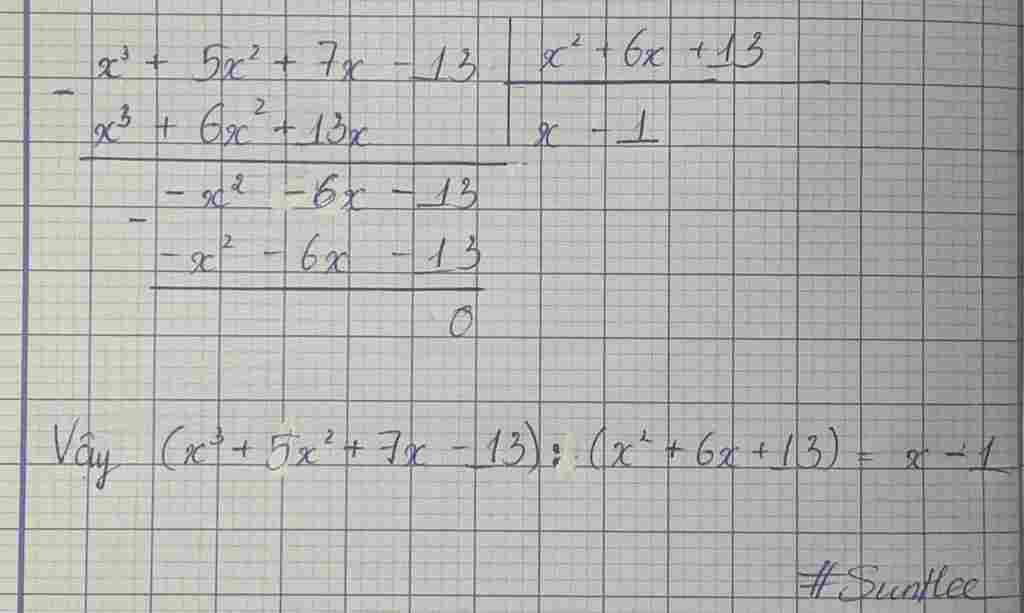 x³ + 5x² + 7x - 13 | x² + 6x + 13
-
x³ + 6x² + 13x | x - 1
- x² - 6x - 13
-
- x² - 6x - 13
0
Vậy (x³ + 5x² + 7x - 13) : (x² + 6x + 13) = x - 1